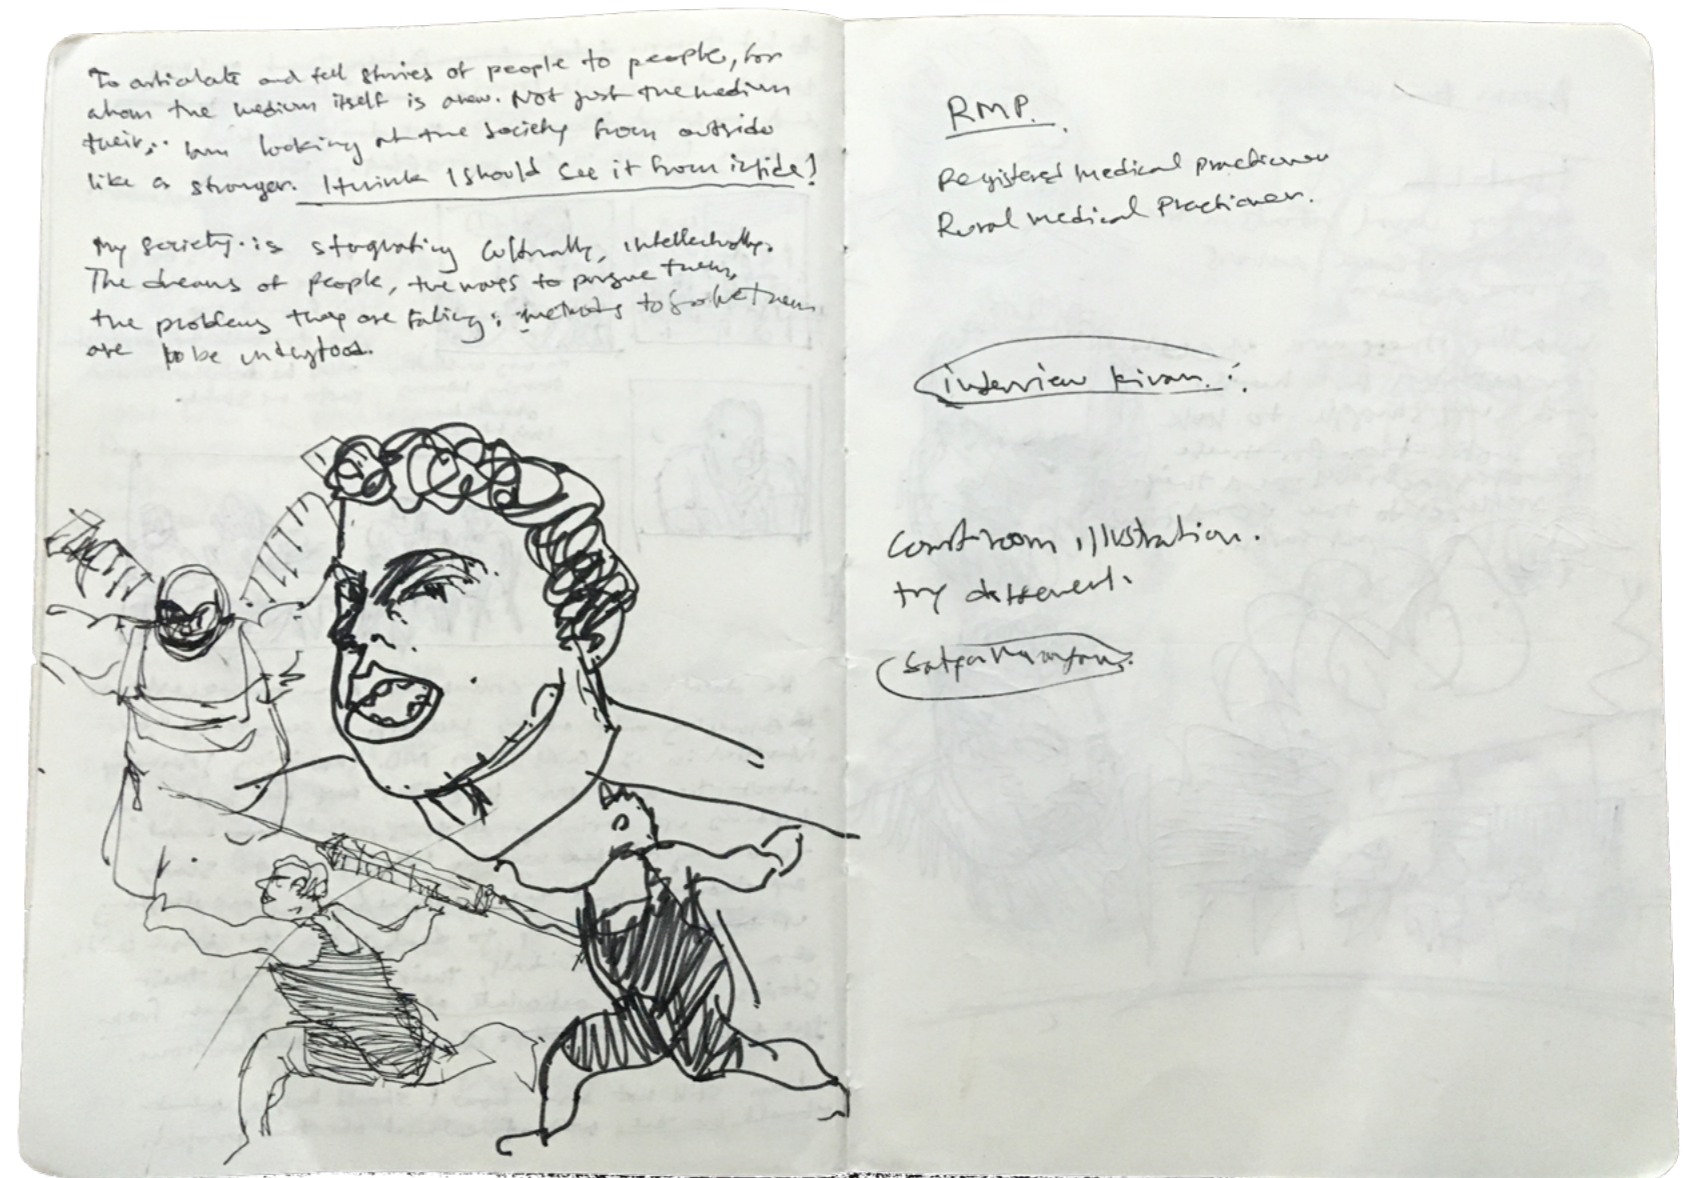 To articulate and tell stories of people to people, for
whom the medium itself is new. Not just the medium
their,. Iam looking at the society from outside
like a stranger. I think I should see it from inside!
My society. is stagnating culturally, intellectually.
The dreams of people, the ways to pursue them,
the problems they are facing; methods to solve them
are to be understood.
RMP.
Registered medical practioner
Rural medical Practioner.
interview kiran :
Courtroom illustration.
try different.